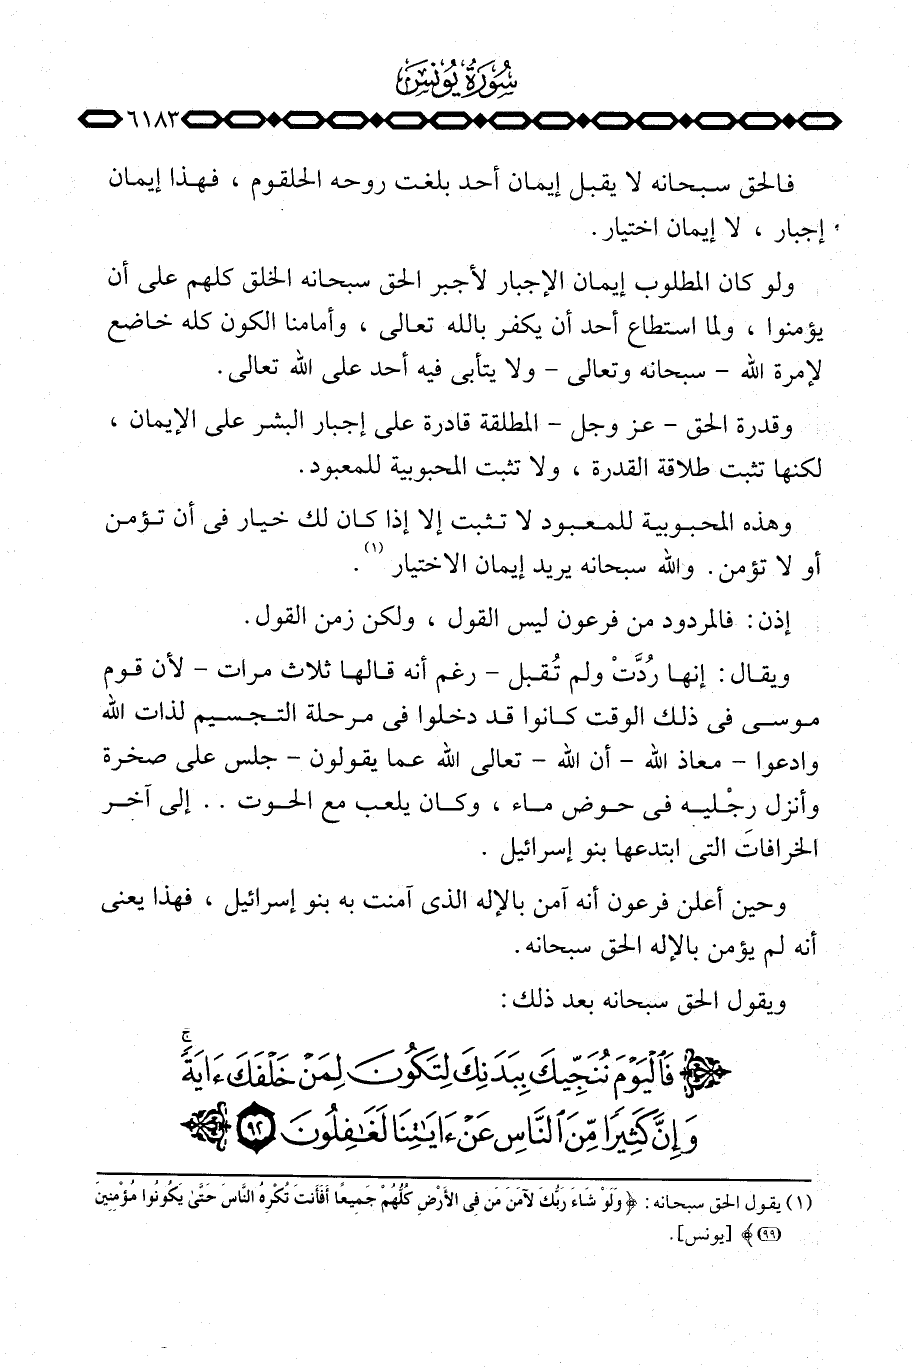 سُورَةُ يُونُسَ
٦١٨٣
فالحق سبحانه لا يقبل إيمان أحد بلغت روحه الحلقوم ، فهذا إيمان
إجبار ، لا إيمان اختيار.
ولو كان المطلوب إيمان الإجبار لأجبر الحق سبحانه الخلق كلهم على أن
يؤمنوا ، ولما استطاع أحد أن يكفر بالله تعالى ، وأمامنا الكون كله خاضع
لإمرة الله - سبحانه وتعالى - ولا يتأبى فيه أحد على الله تعالى.
وقدرة الحق - عز وجل - المطلقة قادرة على إجبار البشر على الإيمان ،
لكنها تثبت طلاقة القدرة ، ولا تثبت المحبوبية للمعبود.
وهذه المحبوبية للمعبود لا تثبت إلا إذا كان لك خيار فى أن تؤمن
أو لا تؤمن. والله سبحانه يريد إيمان الاختيار (١).
إذن: فالمردود من فرعون ليس القول ، ولكن زمن القول.
ويقال: إنها رُدَّتْ ولم تُقبل - رغم أنه قالها ثلاث مرات - لأن قوم
موسى فى ذلك الوقت كانوا قد دخلوا فى مرحلة التجسيم لذات الله
وادعوا - معاذ الله - أن الله - تعالى الله عما يقولون - جلس على صخرة
وأنزل رجْليه فى حوض ماء ، وكان يلعب مع الحوت .. إلى آخر
الخرافات التى ابتدعها بنو إسرائيل .
وحين أعلن فرعون أنه آمن بالإله الذى آمنت به بنو إسرائيل ، فهذا يعنى
أنه لم يؤمن بالإله الحق سبحانه.
ويقول الحق سبحانه بعد ذلك:
﴿ فَٱلْيَوْمَ نُنَجِّيكَ بِبَدَنِكَ لِتَكُونَ لِمَنْ خَلْفَكَ ءَايَةً ۚ
وَإِنَّ كَثِيرًا مِّنَ ٱلنَّاسِ عَنْ ءَايَٰتِنَا لَغَٰفِلُونَ ٩٢ ﴾
(١) يقول الحق سبحانه: ﴿ وَلَوْ شَاءَ رَبُّكَ لآمَنَ مَن فِى الأَرْضِ كُلُّهُمْ جَمِيعًا أَفَأَنتَ تُكْرِهُ النَّاسَ حَتَّىٰ يَكُونُوا مُؤْمِنِينَ
(٩٩) ﴾ [يونس].